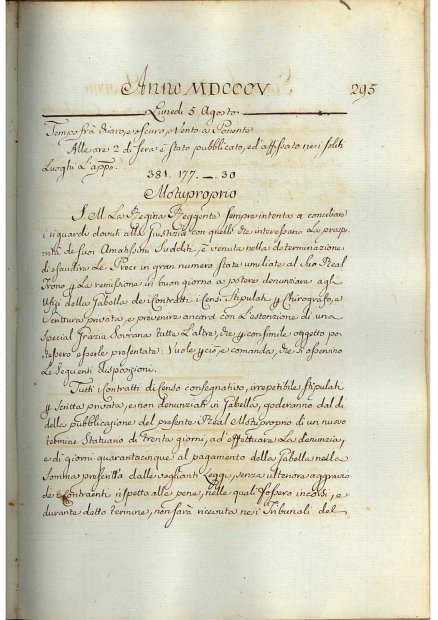 Anno MDCCCV 295
Lunedì 5 Agosto.
Tempo frà chiaro, e oscuro, e Vento a Ponente.
Alle ore 2 di sera è stato pubblicato, ed affissato nei soliti
Luoghi L'appo.
381. 177. — 30
Motuproprio
S. M. La Regina Reggente sempre intenta a conciliare
i riguardi dovuti alla Giustizia con quelli che interessano La prospe
rità de suoi Amatissimi Sudditi, è venuta nella determinazione
di esaudire Le Preci in gran numero state umiliate al Suo Real
Trono p La remissione in buon giorno a potere denunziare agli
Ufizi della Gabella de Contratti i Censi Stipulati p Chirografo, e
Scrittura privata, e prevenire ancora con L'estenzione di una
special Grazia Sovrana tutte L'altre, che p consimile oggetto po
tessero esserle presentate: Vuole p ciò, e comanda, che si osservino
Le seguenti disposizioni.
Tutti i Contratti di Censo consegnativo, irrepetibile stipulati
p Scritta privata, e non denunziati in Gabella, goderanno dal dì
della pubblicazione del presente Real Motuproprio di un nuovo
termine di Trenta giorni, ad effettuare La denunzia,
e di giorni quarantacinque al pagamento della Gabella nella
Somma prescritta dalle veglianti Leggi, senza ulteriore aggravio
de Contraenti rispetto alle pene, nelle quali fossero incorsi, e
durante detto termine, non sarà ricevuta nei Tribunali del